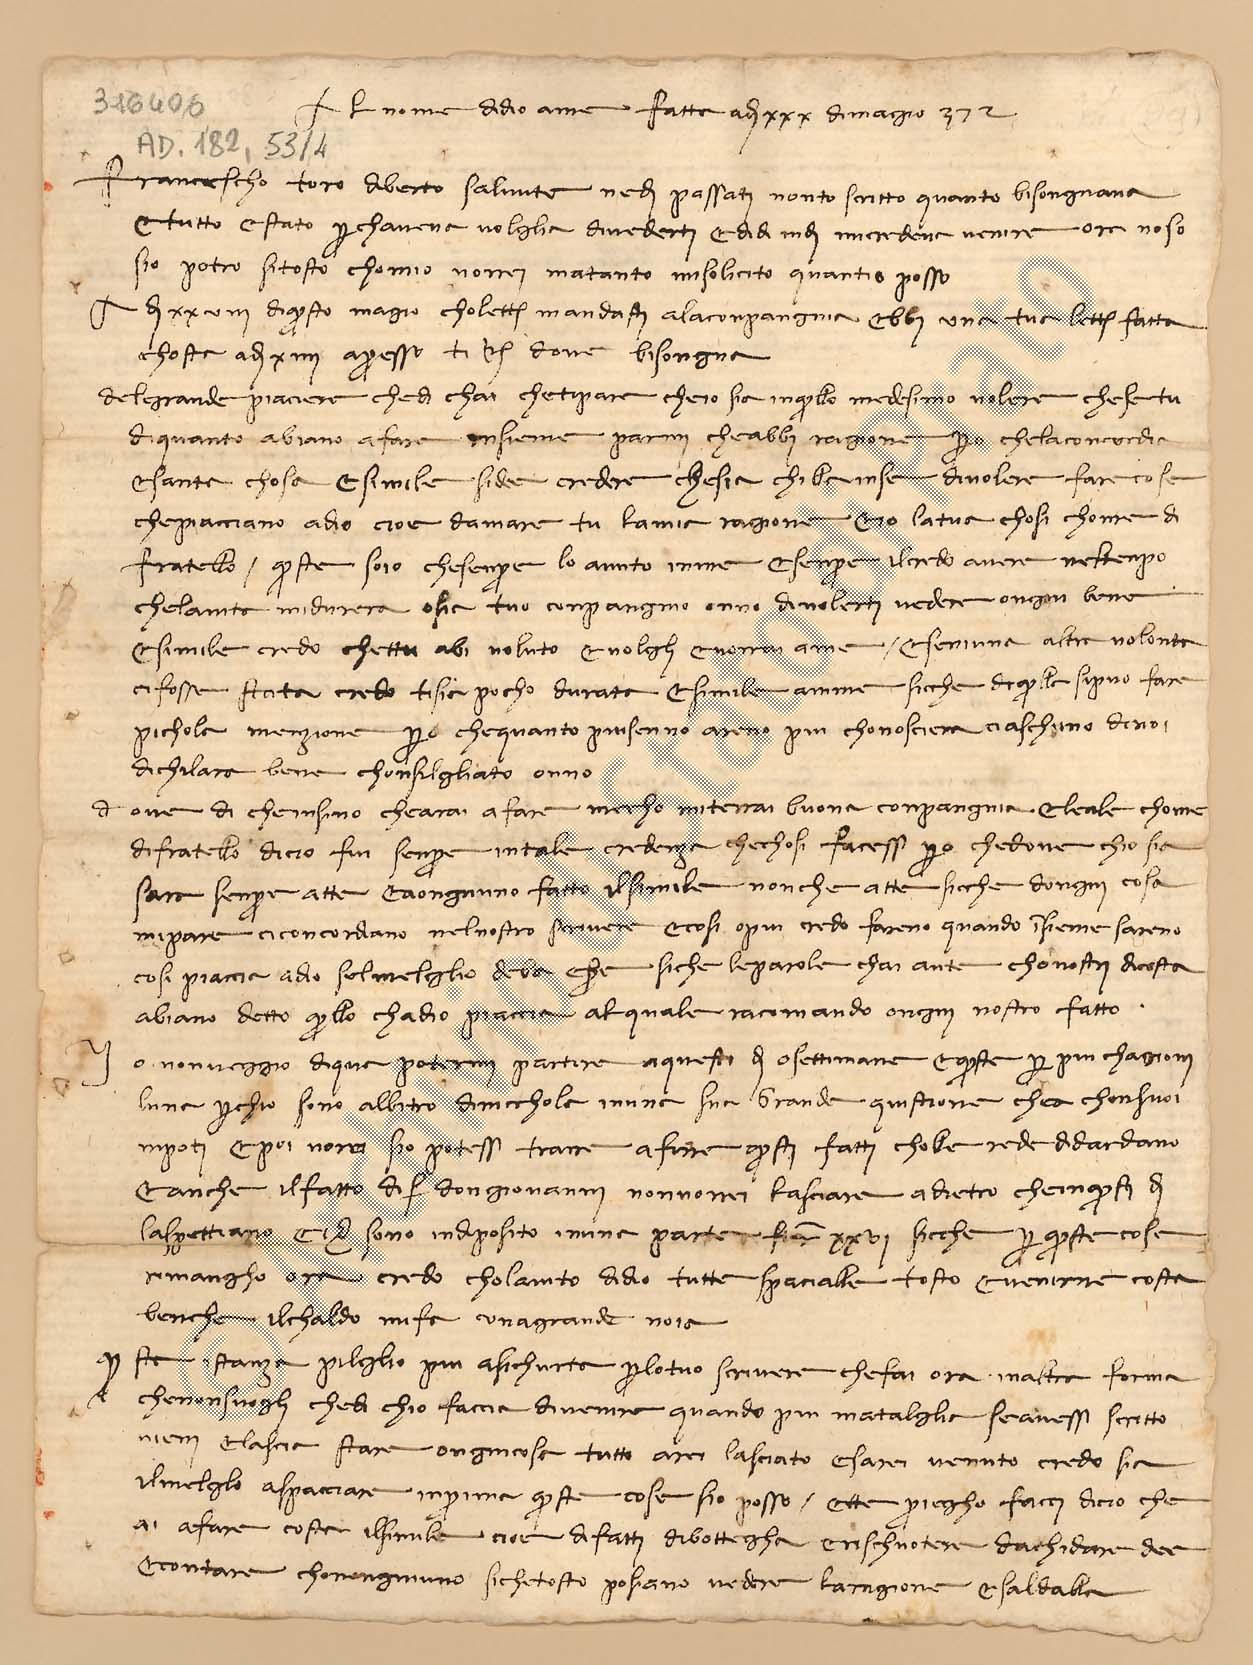 316406
AD. 182, 53/4
Al nome didio ame fatta adj xxx dimagio 372
Francescho toro diberto salute nedj passatj nonto scritto quanto bisongnava
Etutto estato perchaveva volglia divederti Edidi indj micredeva venire ora noso
sio potro sitosto chomio vorrei matanto misolicito quantio posso
A dj xxvii diquesto magio choletter mandasti alaconpangnia Ebbi una tua letter fatta
chosta adj xiiii apresso ti dove bisongna
delgrande piaciere chedi chai chetipare cheio sia inquello medesimo volere chesetu
diquanto abiano afare insieme parmi cheabbi ragione pero chelaconcordia
Esanta chosa Esimile sidee credere chesia chi lla inse divolere fare cose
chepiacciano adio cioe damare tu lamia ragione Eio latua chosi chome di
fratello / queste soio chesenpre lo auuto inme Esenpre ilcredo avere neltenpo
chelavita midurera osia tuo conpangnio onno divolerti vedere ongni bene
Esimile credo chettu abi voluto Evolglj Evorrai ame / Eseniuna altra volonta
cifosse stata credo tisia pocho durata Esimile amme sicche diquella sipuo fare
pichola menzione pero chequanto piusenno areno piu chonosciera ciaschuno dinoi
dichilara bene chonsilgliato onno
d ove di cheinsino chearai afare mecho miterrai buona conpangnia Eleale chome
difratello dicio fui senpre intale credenza chechosi facessi pero chedove chio sia
sara senpre atte Eaongniuno fatto ilsimile nonche atte sicche dongni cosa
mipare ciconcordiano nelnostro scrivere Ecosi opiu credo fareno quando insieme sareno
cosi piaccia adio selmelglio debe Esere siche leparole chai ante chonostri dicosta
abiano detto quello chadio piaccia alquale racomando ongni nostro fatto
I o nonveggio diqua potermi partire aquesti dj osettimane Equeste per piu chagioni
luna perchio sono albitro dinicchola inuna sua Grande quistione chea chonsuoi
nipoti Epoi vorei sio potessi trarre afine questi fatti cholle rede didardano
Eanche ilfatto di ser dongiovanni nonvorrei lasciare adietro cheinquesti dj
laspettiano sono indiposito inuna parte fior xxvi sicche per queste cose
rimangho ora credo cholaiuto didio tutte spacialle tosto Evenirne costa
benche ilchaldo mifa unagrande noia
que sta istanza pilglio piu asichurta perlotuo scrivere chefai ora inaltra forma
chenonsuoglj chedi chio faccia divenire quando piu matalglia seavessi scritto
vieni Elascia stare ongnicosa tutto arei lasciato Esarei venuto credo sia
ilmelglo aspacciare inprima queste cose sio posso / Ette priegho facci dicio che
ai afare costa ilsimile cioe difatti dibottegha erischuotere dachidare dee
Econtare chonongniuno sichetosto posiano vedere laragione Esaldalla